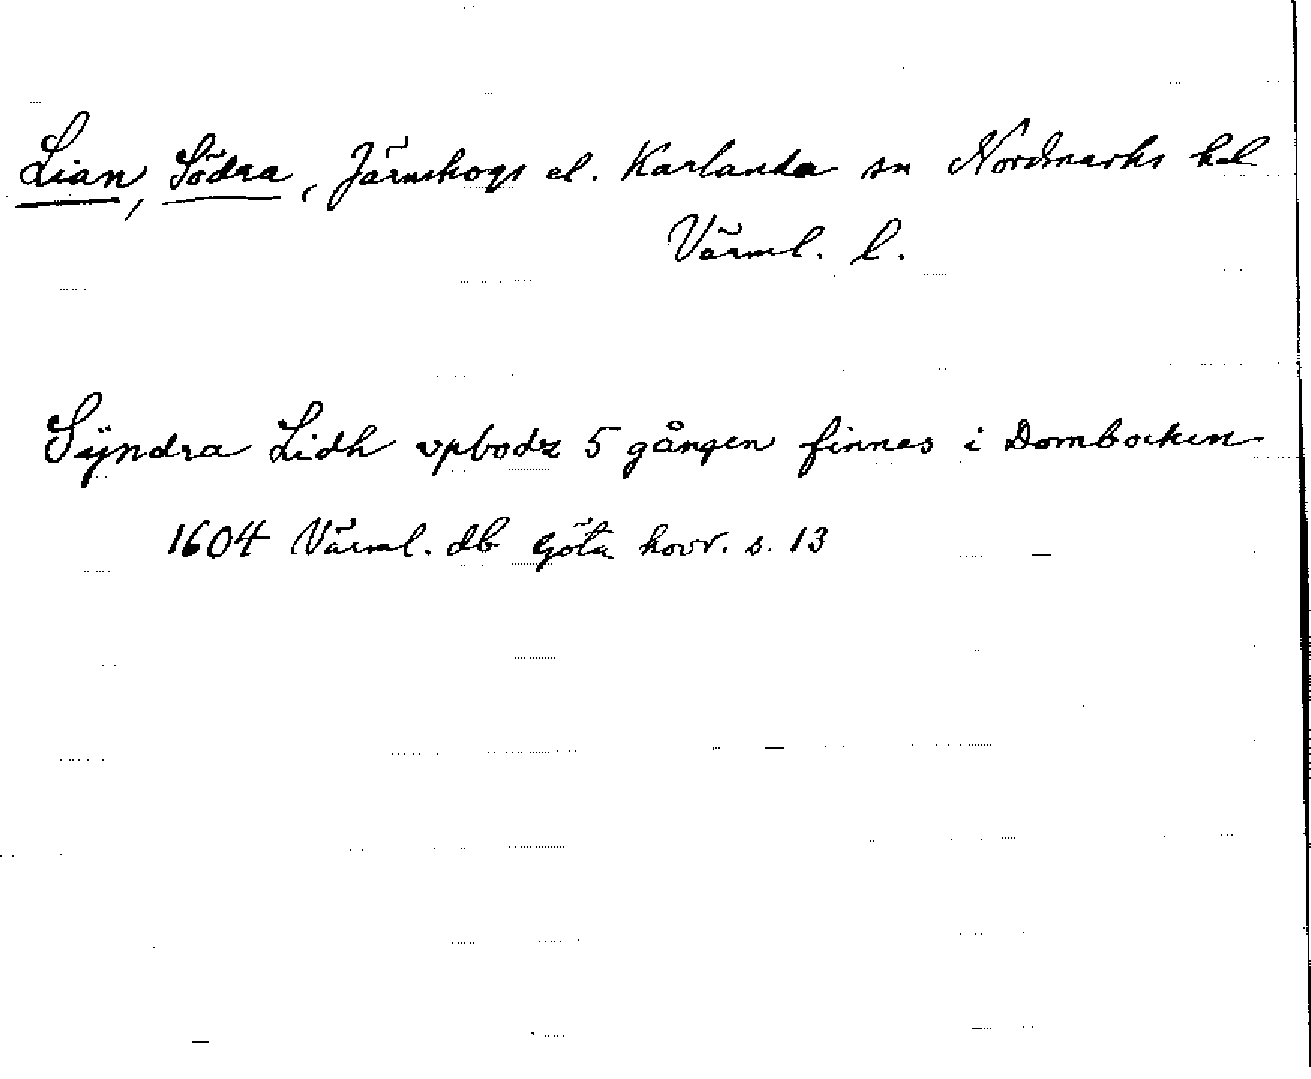 Lian, Södra, Järnskogs el. Karlanda sn Nordmarks hd
Värml. l.
Syndra Lidh vpbodz 5 gången finnes i Domboken
1604 Värml. db Göta hovr. s. 13